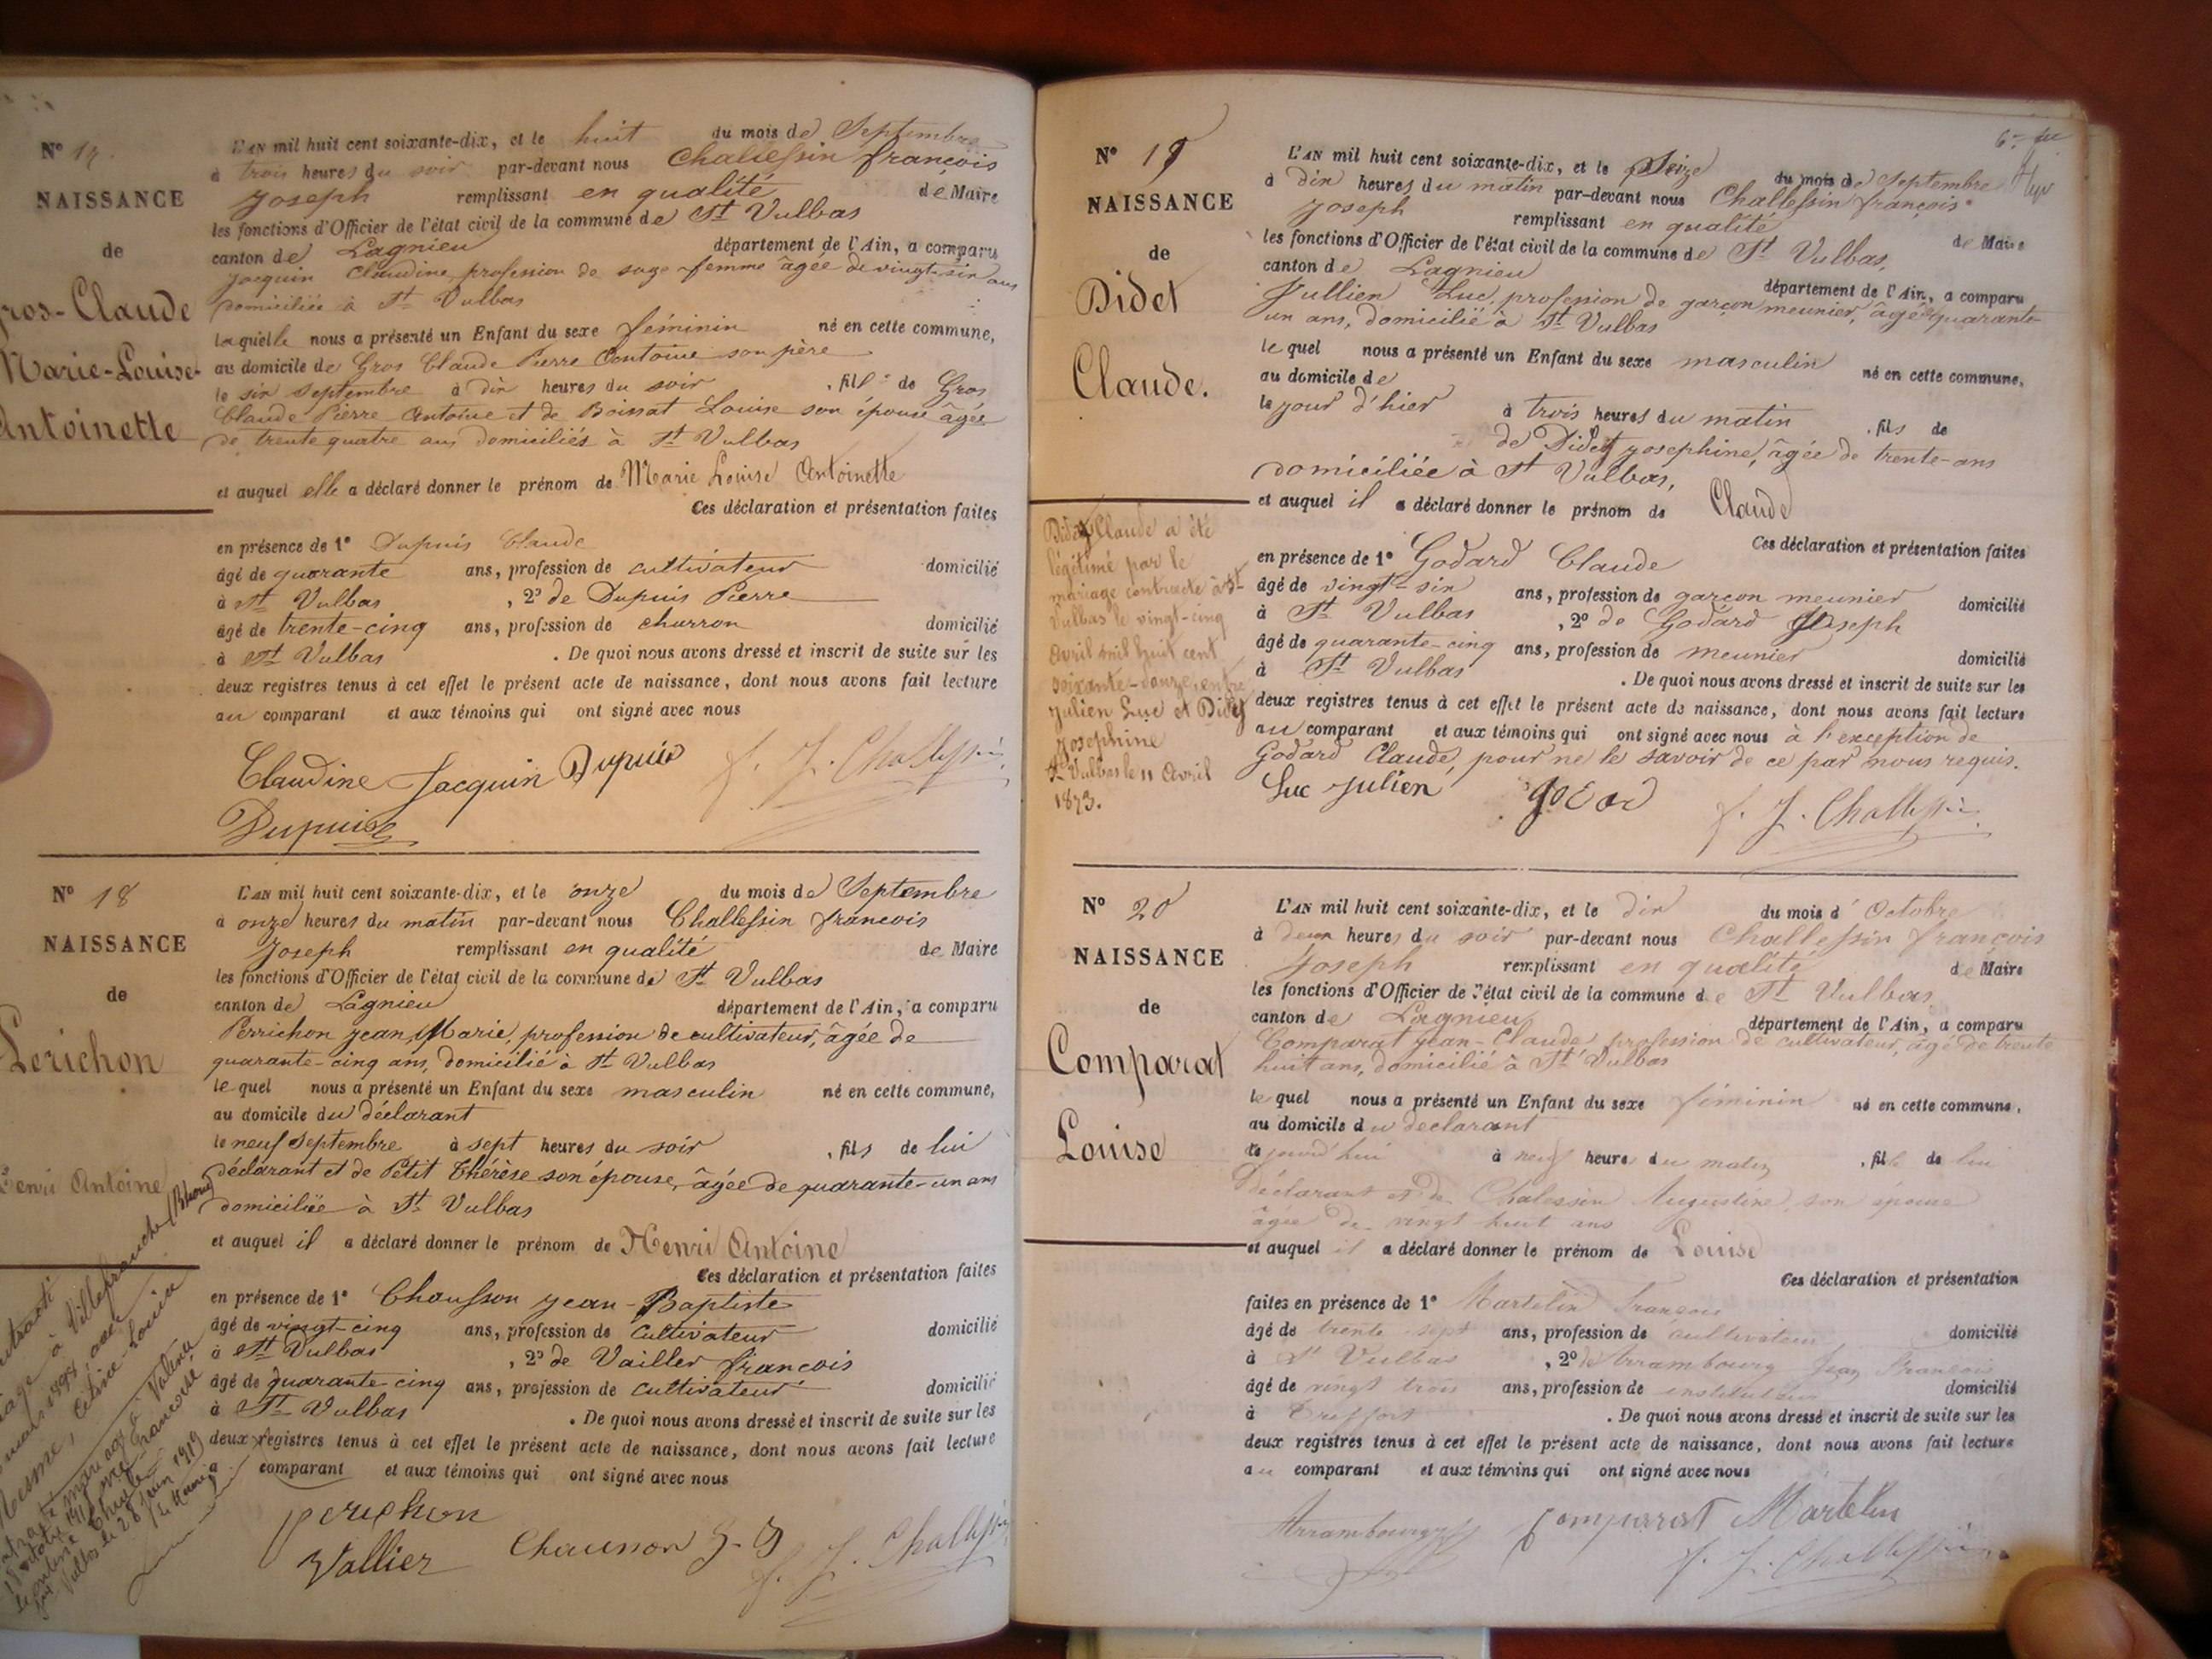 N° 17.
NAISSANCE
de
Gros-Claude
Marie-Louise-
Antoinette
L'AN mil huit cent soixante-dix, et le huit du mois de Septembre
à trois heures du soir par-devant nous Challessin françois
Joseph remplissant en qualité de Maire
les fonctions d'Officier de l'état civil de la commune de St Vulbas
canton de Lagnieu département de l'Ain, a comparu
Jacquin Claudine, profession de sage-femme âgée de vingt-six ans
domiciliée à St Vulbas
laquelle nous a présenté un Enfant du sexe féminin né en cette commune,
au domicile de Gros Claude Pierre Antoine son père
le six septembre à dix heures du soir, fille de Gros
Claude Pierre Antoine et de Boissat Louise son épouse âgée
de trente quatre ans domiciliés à St Vulbas
et auquel elle a déclaré donner le prénom de Marie Louise Antoinette
Ces déclaration et présentation faites
en présence de 1° Dupuis Claude
âgé de quarante ans, profession de cultivateur domicilié
à St Vulbas, 2° de Dupuis Pierre
âgé de trente-cinq ans, profession de charron domicilié
à St Vulbas. De quoi nous avons dressé et inscrit de suite sur les
deux registres tenus à cet effet le présent acte de naissance, dont nous avons fait lecture
au comparant et aux témoins qui ont signé avec nous
Claudine Jacquin Dupuis f. J. Challessin
Dupuis
N° 18
NAISSANCE
de
Perichon
Henri Antoine
L'AN mil huit cent soixante-dix, et le onze du mois de Septembre
à onze heures du matin par-devant nous Challessin francois
Joseph remplissant en qualité de Maire
les fonctions d'Officier de l'état civil de la commune de St Vulbas
canton de Lagnieu département de l'Ain, a comparu
Perrichon jean Marie, profession de cultivateur, âgée de
quarante-cinq ans, domicilié à St Vulbas
lequel nous a présenté un Enfant du sexe masculin né en cette commune,
au domicile du déclarant
le neuf septembre à sept heures du soir, fils de lui
déclarant et de Petit Thérèse son épouse, âgée de quarante-un ans
domiciliée à St Vulbas
et auquel il a déclaré donner le prénom de Henri Antoine
Ces déclaration et présentation faites
en présence de 1° Chausson jean-Baptiste
âgé de vingt-cinq ans, profession de cultivateur domicilié
à St Vulbas, 2° de Vailler francois
âgé de quarante-cinq ans, profession de cultivateur domicilié
à St Vulbas. De quoi nous avons dressé et inscrit de suite sur les
deux registres tenus à cet effet le présent acte de naissance, dont nous avons fait lecture
a comparant et aux témoins qui ont signé avec nous
perichon
Vallier Chausson J-B f. J. Challessin
à Villefranche (Rhône)
mars 1898, avec
Mesme, Louise
mariage à Valence
Françoise
28 juin 1919
Le Maire
N° 19
NAISSANCE
de
Didet
Claude.
L'AN mil huit cent soixante-dix, et le Seize du mois de Septembre
à dix heures du matin par-devant nous Challessin françois
Joseph remplissant en qualité de Maire
les fonctions d'Officier de l'état civil de la commune de St Vulbas,
canton de Lagnieu département de l'Ain, a comparu
Jullien Luc, profession de garçon meunier, âgé de quarante-
un ans, domicilié à St Vulbas
lequel nous a présenté un Enfant du sexe masculin né en cette commune,
au domicile de
le jour d'hier à trois heures du matin, fils de
de Didet Josephine, âgée de trente-ans
domiciliée à St Vulbas,
et auquel il a déclaré donner le prénom de Claude
Ces déclaration et présentation faites
en présence de 1° Godard Claude
âgé de vingt-six ans, profession de garçon meunier domicilié
à St Vulbas, 2° de Godard Joseph
âgé de quarante-cinq ans, profession de meunier domicilié
à St Vulbas. De quoi nous avons dressé et inscrit de suite sur les
deux registres tenus à cet effet le présent acte de naissance, dont nous avons fait lecture
au comparant et aux témoins qui ont signé avec nous à l'exception de
Godard Claude, pour ne le savoir de ce par nous requis.
Luc julien f. J. Challessin
Didet Claude a été
légitimé par le
mariage contracté à St-
Vulbas le vingt-cinq
Avril mil huit cent
soixante-douze, entre
Julien Luc et Didet
Josephine
St Vulbas le 11 Avril
1873.
N° 20
NAISSANCE
de
Comparat
Louise
L'AN mil huit cent soixante-dix, et le dix du mois d' Octobre
à deux heures du soir par-devant nous Challessin françois
Joseph remplissant en qualité de Maire
les fonctions d'Officier de l'état civil de la commune de St Vulbas
canton de Lagnieu département de l'Ain, a comparu
Comparat jean-Claude profession de cultivateur, âgé de trente
huit ans, domicilié à St Vulbas
lequel nous a présenté un Enfant du sexe féminin né en cette commune,
au domicile du declarant
le jourd'hui à neuf heures du matin, fille de lui
déclarant et de Chalessin Augustine, son épouse
âgée de vingt huit ans
et auquel il a déclaré donner le prénom de Louise
Ces déclaration et présentation
faites en présence de 1° Martelin François
âgé de trente sept ans, profession de cultivateur domicilié
à St Vulbas, 2° de Arrambourg Jean François
âgé de vingt trois ans, profession de instituteur domicilié
à Treffort. De quoi nous avons dressé et inscrit de suite sur les
deux registres tenus à cet effet le présent acte de naissance, dont nous avons fait lecture
au comparant et aux témoins qui ont signé avec nous
Arrambourg Comparat Martelin
f. J. Challessin